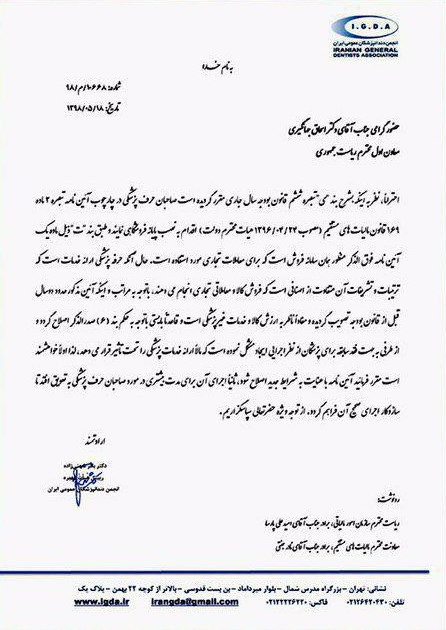 I.G.D.A
انجمن دندانپزشکان عمومی ایران
IRANIAN GENERAL
DENTISTS ASSOCIATION
به نام خدا
شماره: ۱۰۶۶۸/م/۹۸
تاریخ: ۱۳۹۸/۰۵/۱۸
حضور گرامی جناب آقای دکتر اسحاق جهانگیری
معاون اول محترم ریاست جمهوری
احتراما، نظر به اینکه بشرح بند می تبصره ششم قانون بودجه سال جاری مقرر گردیده است صاحبان حرف پزشکی در چارچوب آئین نامه تبصره ۲ ماده
۱۶۹ قانون مالیات های مستقیم (مصوب ۱۳۹۶/۰۴/۲۴ هیات محترم دولت) اقدام به نصب پایانه فروشگاهی نمایند و طبق بند "ت" ذیل ماده یک
آئین نامه فوق الذکر منظور همان سامانه فروش است که برای معاملات تجاری مورد استفاده است، حال آنکه حرفه پزشکی ارائه خدمات است که
ترتیبات و تشریفات آن متفاوت از اصنافی است که فروش کالا و معاملاتی تجاری انجام می دهند، باتوجه به مراتب و اینکه آئین مذکور حدود دو سال
قبل از قانون بودجه تصویب گردیده و مفادا ناظر به ارزش کالا و خدمات غیر پزشکی است و قاعدتا بایستی باتوجه به حکم بند (۶) صدر الذکر اصلاح گردد و
از طرفی به جهت فقد سابقه برای پزشکان از نظر اجرایی ایجاد مشکل نموده است که مالا ارائه خدمات پزشکی را تحت تأثیر قرار می دهد، لذا اولا خواهشمند
است مقرر فرمائید آئین نامه با عنایت به شرایط جدید اصلاح شود، ثانیا اجرای آن برای مدت بیشتری در مورد صاحبان حرف پزشکی به تعویق افتد تا
سازوکار اجرای صحیح آن فراهم گردد. از توجه ویژه حضرتعالی سپاسگزاریم.
ارادتمند
دکتر
انجمن دندانپزشکان عمومی ایران
رونوشت:
ریاست محترم سازمان امور مالیاتی، برادر جناب آقای امید علی پارسا
معاونت محترم مالیات های مستقیم، برادر جناب آقای نادر جنتی
نشانی: تهران - بزرگراه مدرس شمال - بلوار میرداماد - بن بست قدوسی - بالاتر از کوچه ۲۲ بهمن - پلاک یک
تلفن: ۰۲۱۲۶۴۲۰۴۳۰ فاکس: ۰۲۱۲۲۲۲۶۲۲۰ irangda@gmail.com www.igda.ir